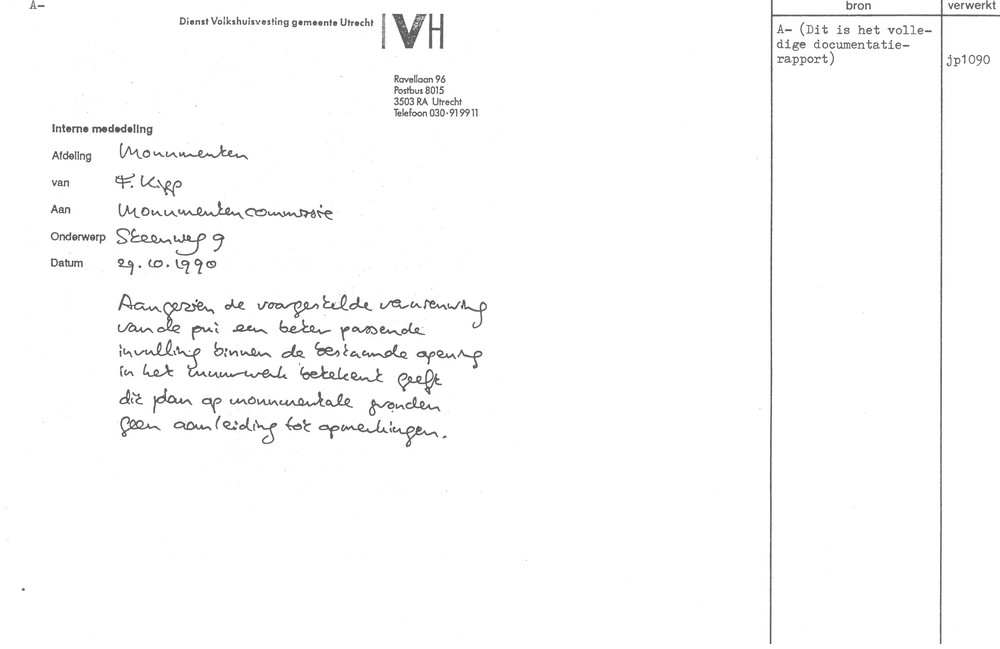 A-
Dienst Volkshuisvesting gemeente Utrecht
VH
Ravellaan 96
Postbus 8015
3503 RA Utrecht
Telefoon 030-919911
Interne mededeling
Afdeling Monumenten
van F. Kipp
Aan Monumentencommissie
Onderwerp Steenweg 9
Datum 29.10.1990
Aangezien de voorgestelde vernieuwing
van de pui een beter passende
invulling binnen de bestaande opening
in het muurwerk betekent geeft
dit plan op monumentale gronden
geen aanleiding tot opmerkingen.
bron
verwerkt
A- (Dit is het volle-
dige documentatie-
rapport)
jp1090